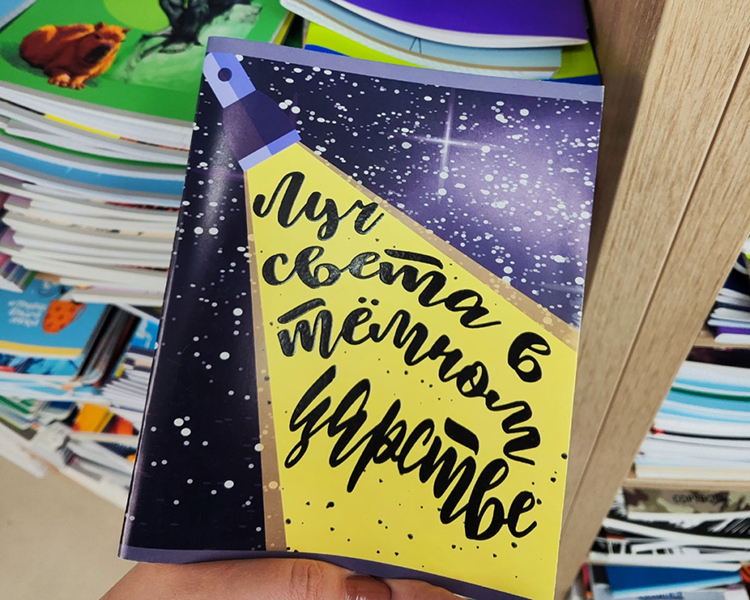 Луч
света в
тёмном
царстве